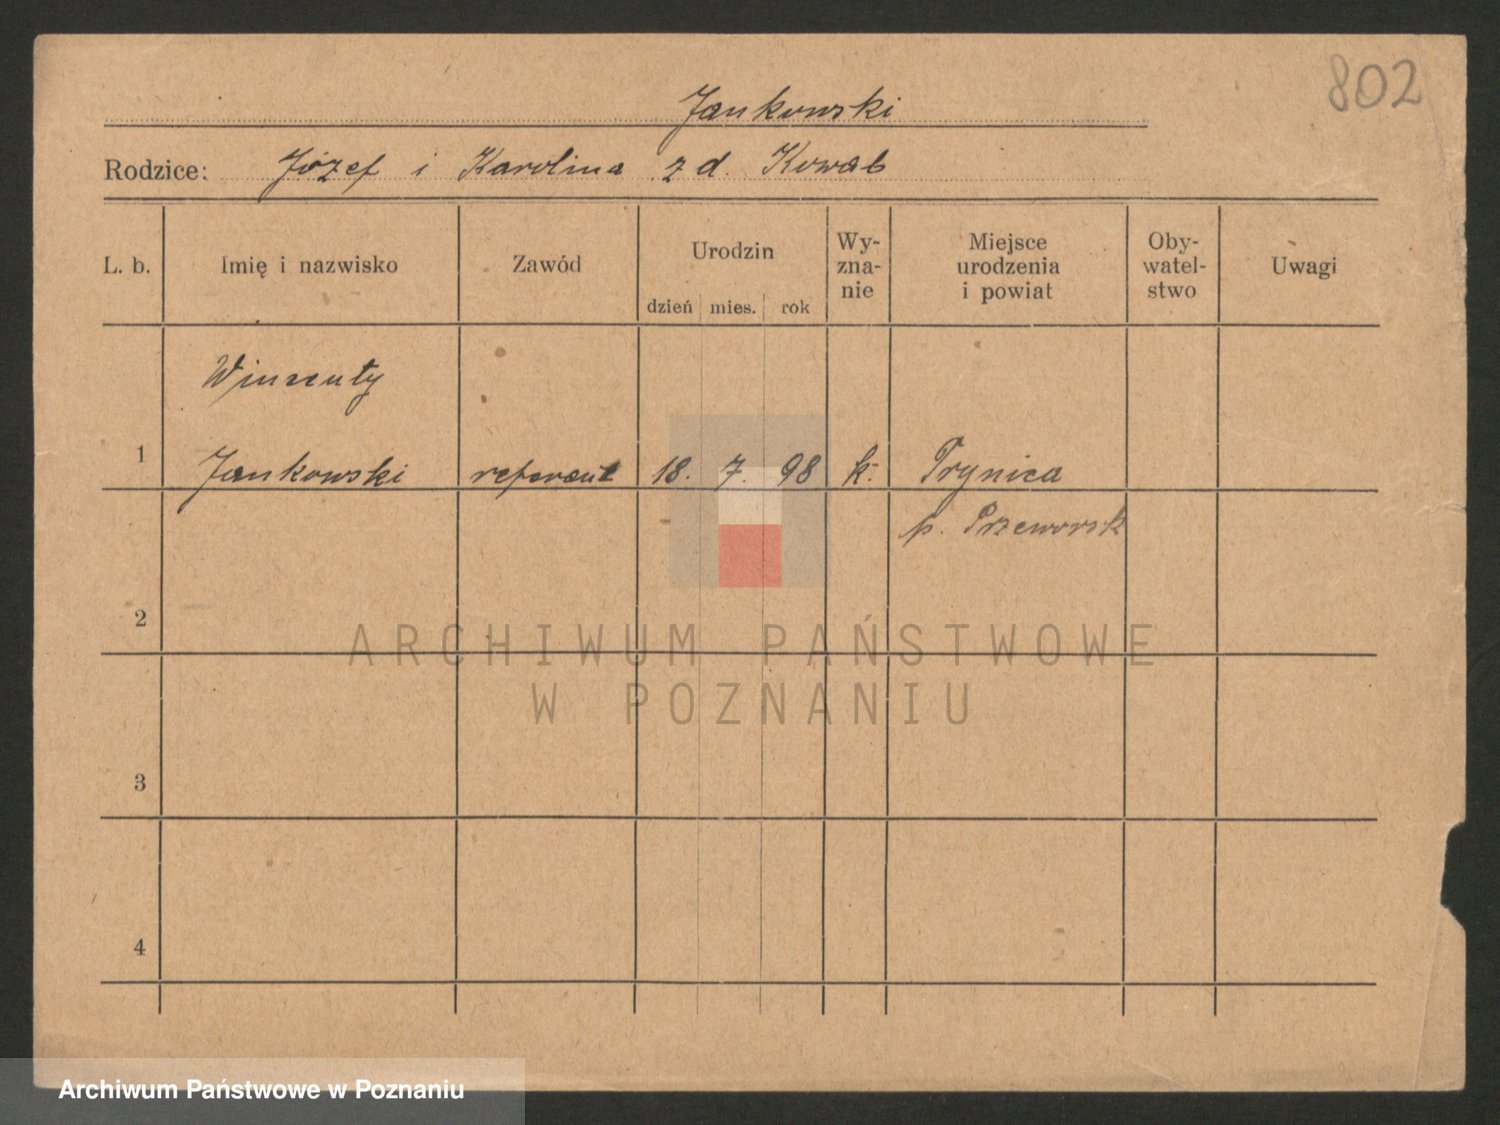 802
Jankowski
Rodzice: Józef i Karolina z d. Kowal
L. b. Imię i nazwisko Zawód Urodzin Wy-zna-nie Miejsce urodzenia i powiat Oby-watel-stwo Uwagi
dzień mies. rok
Winzenty
1 Jankowski referent 18. 7. 98 k. Trynica
p. Przeworsk
2
ARCHIWUM PAŃSTWOWE
W POZNANIU
3
4
Archiwum Państwowe w Poznaniu